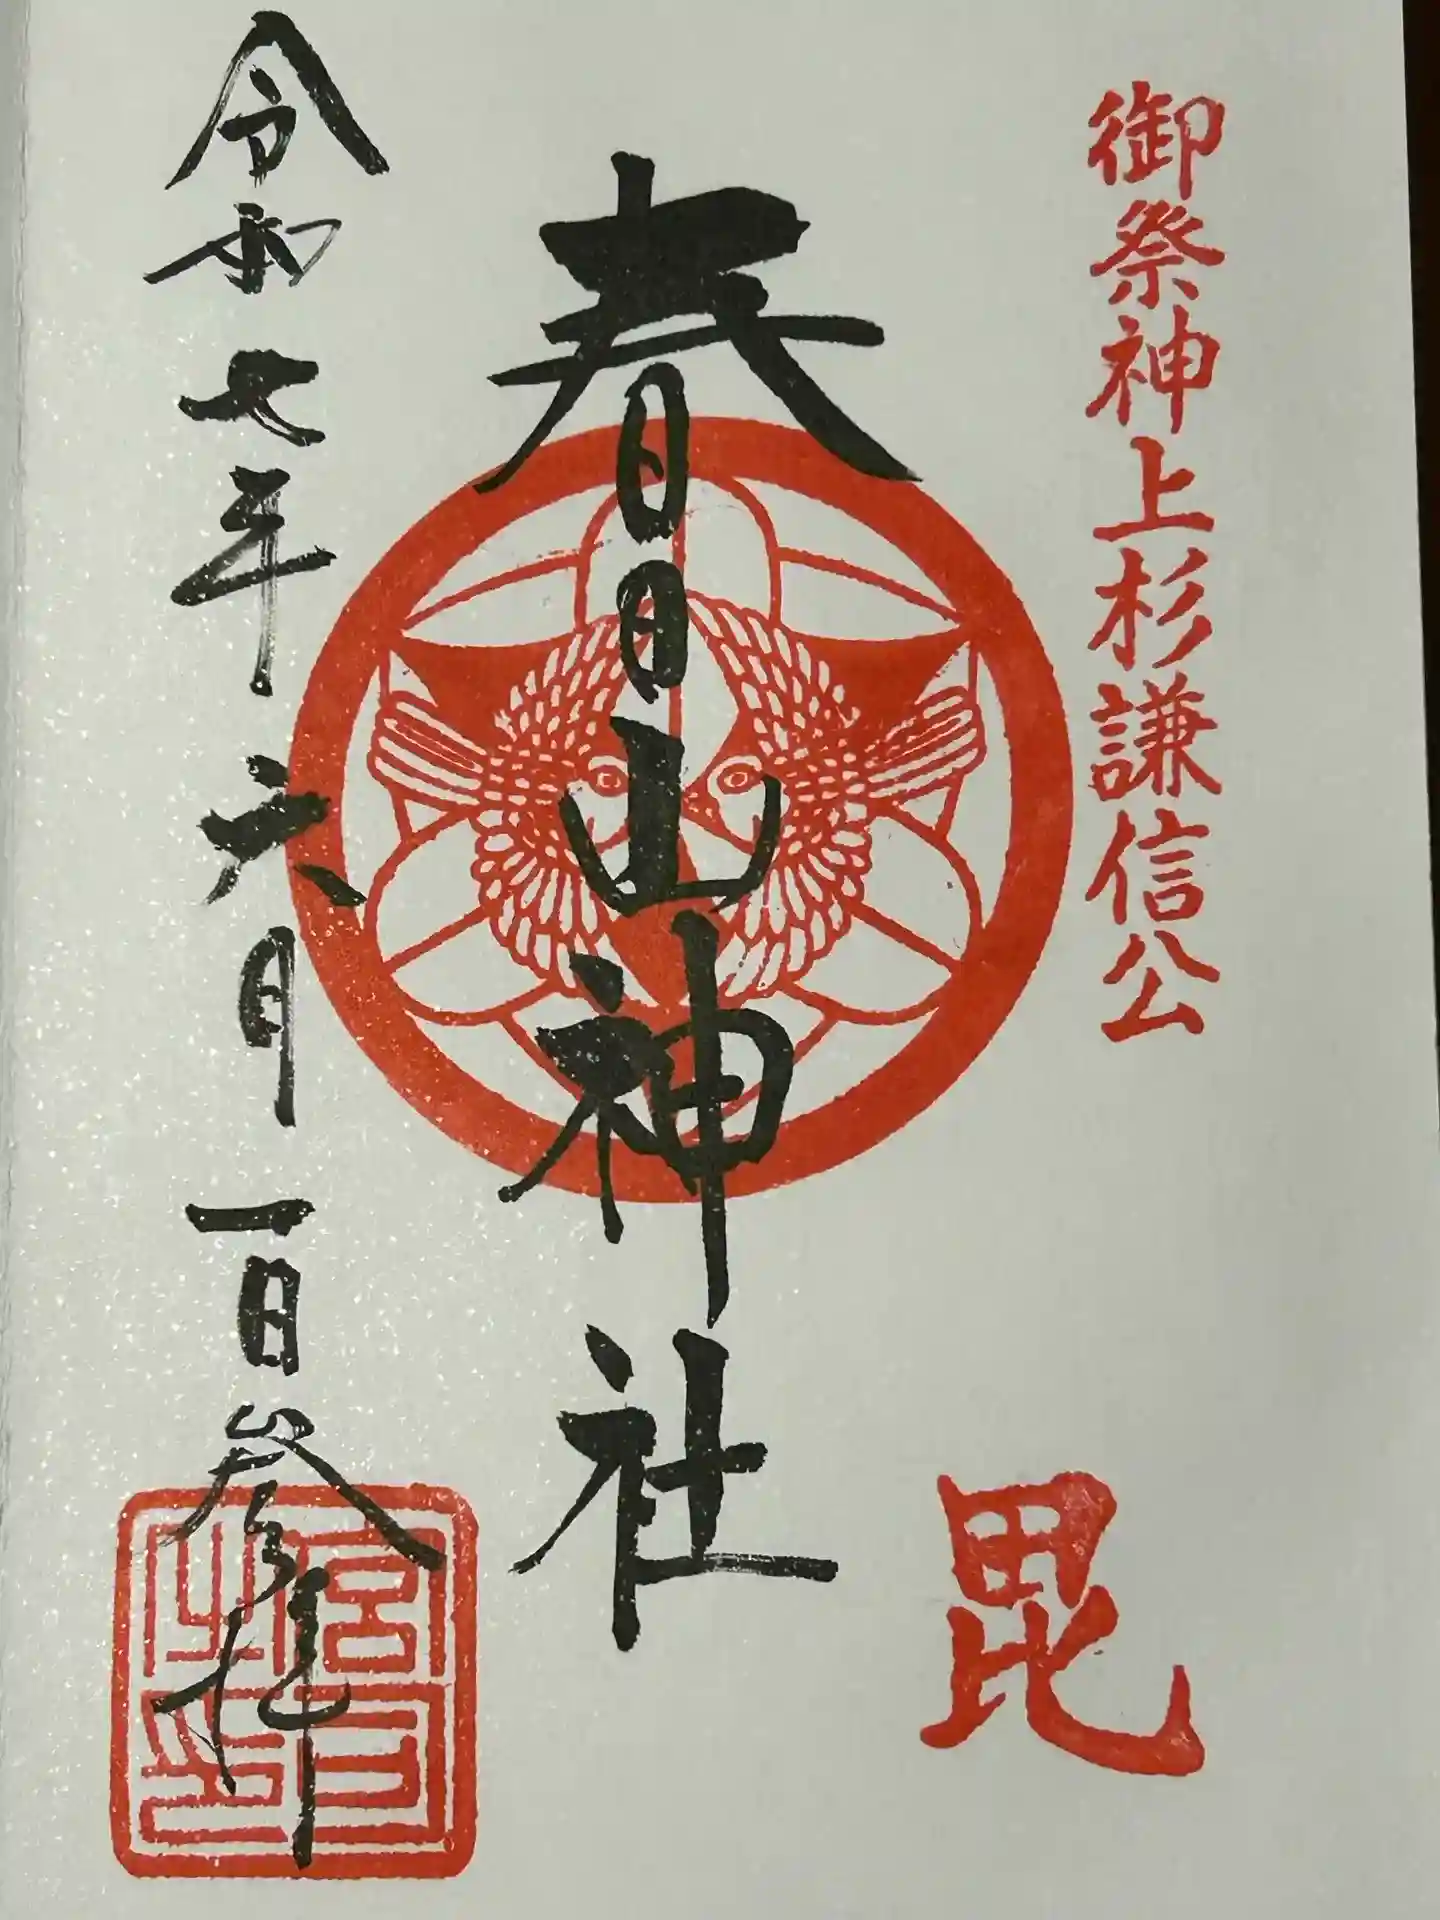 御祭神上杉謙信公
毘
春日山神社
令和七年六月一日参拝